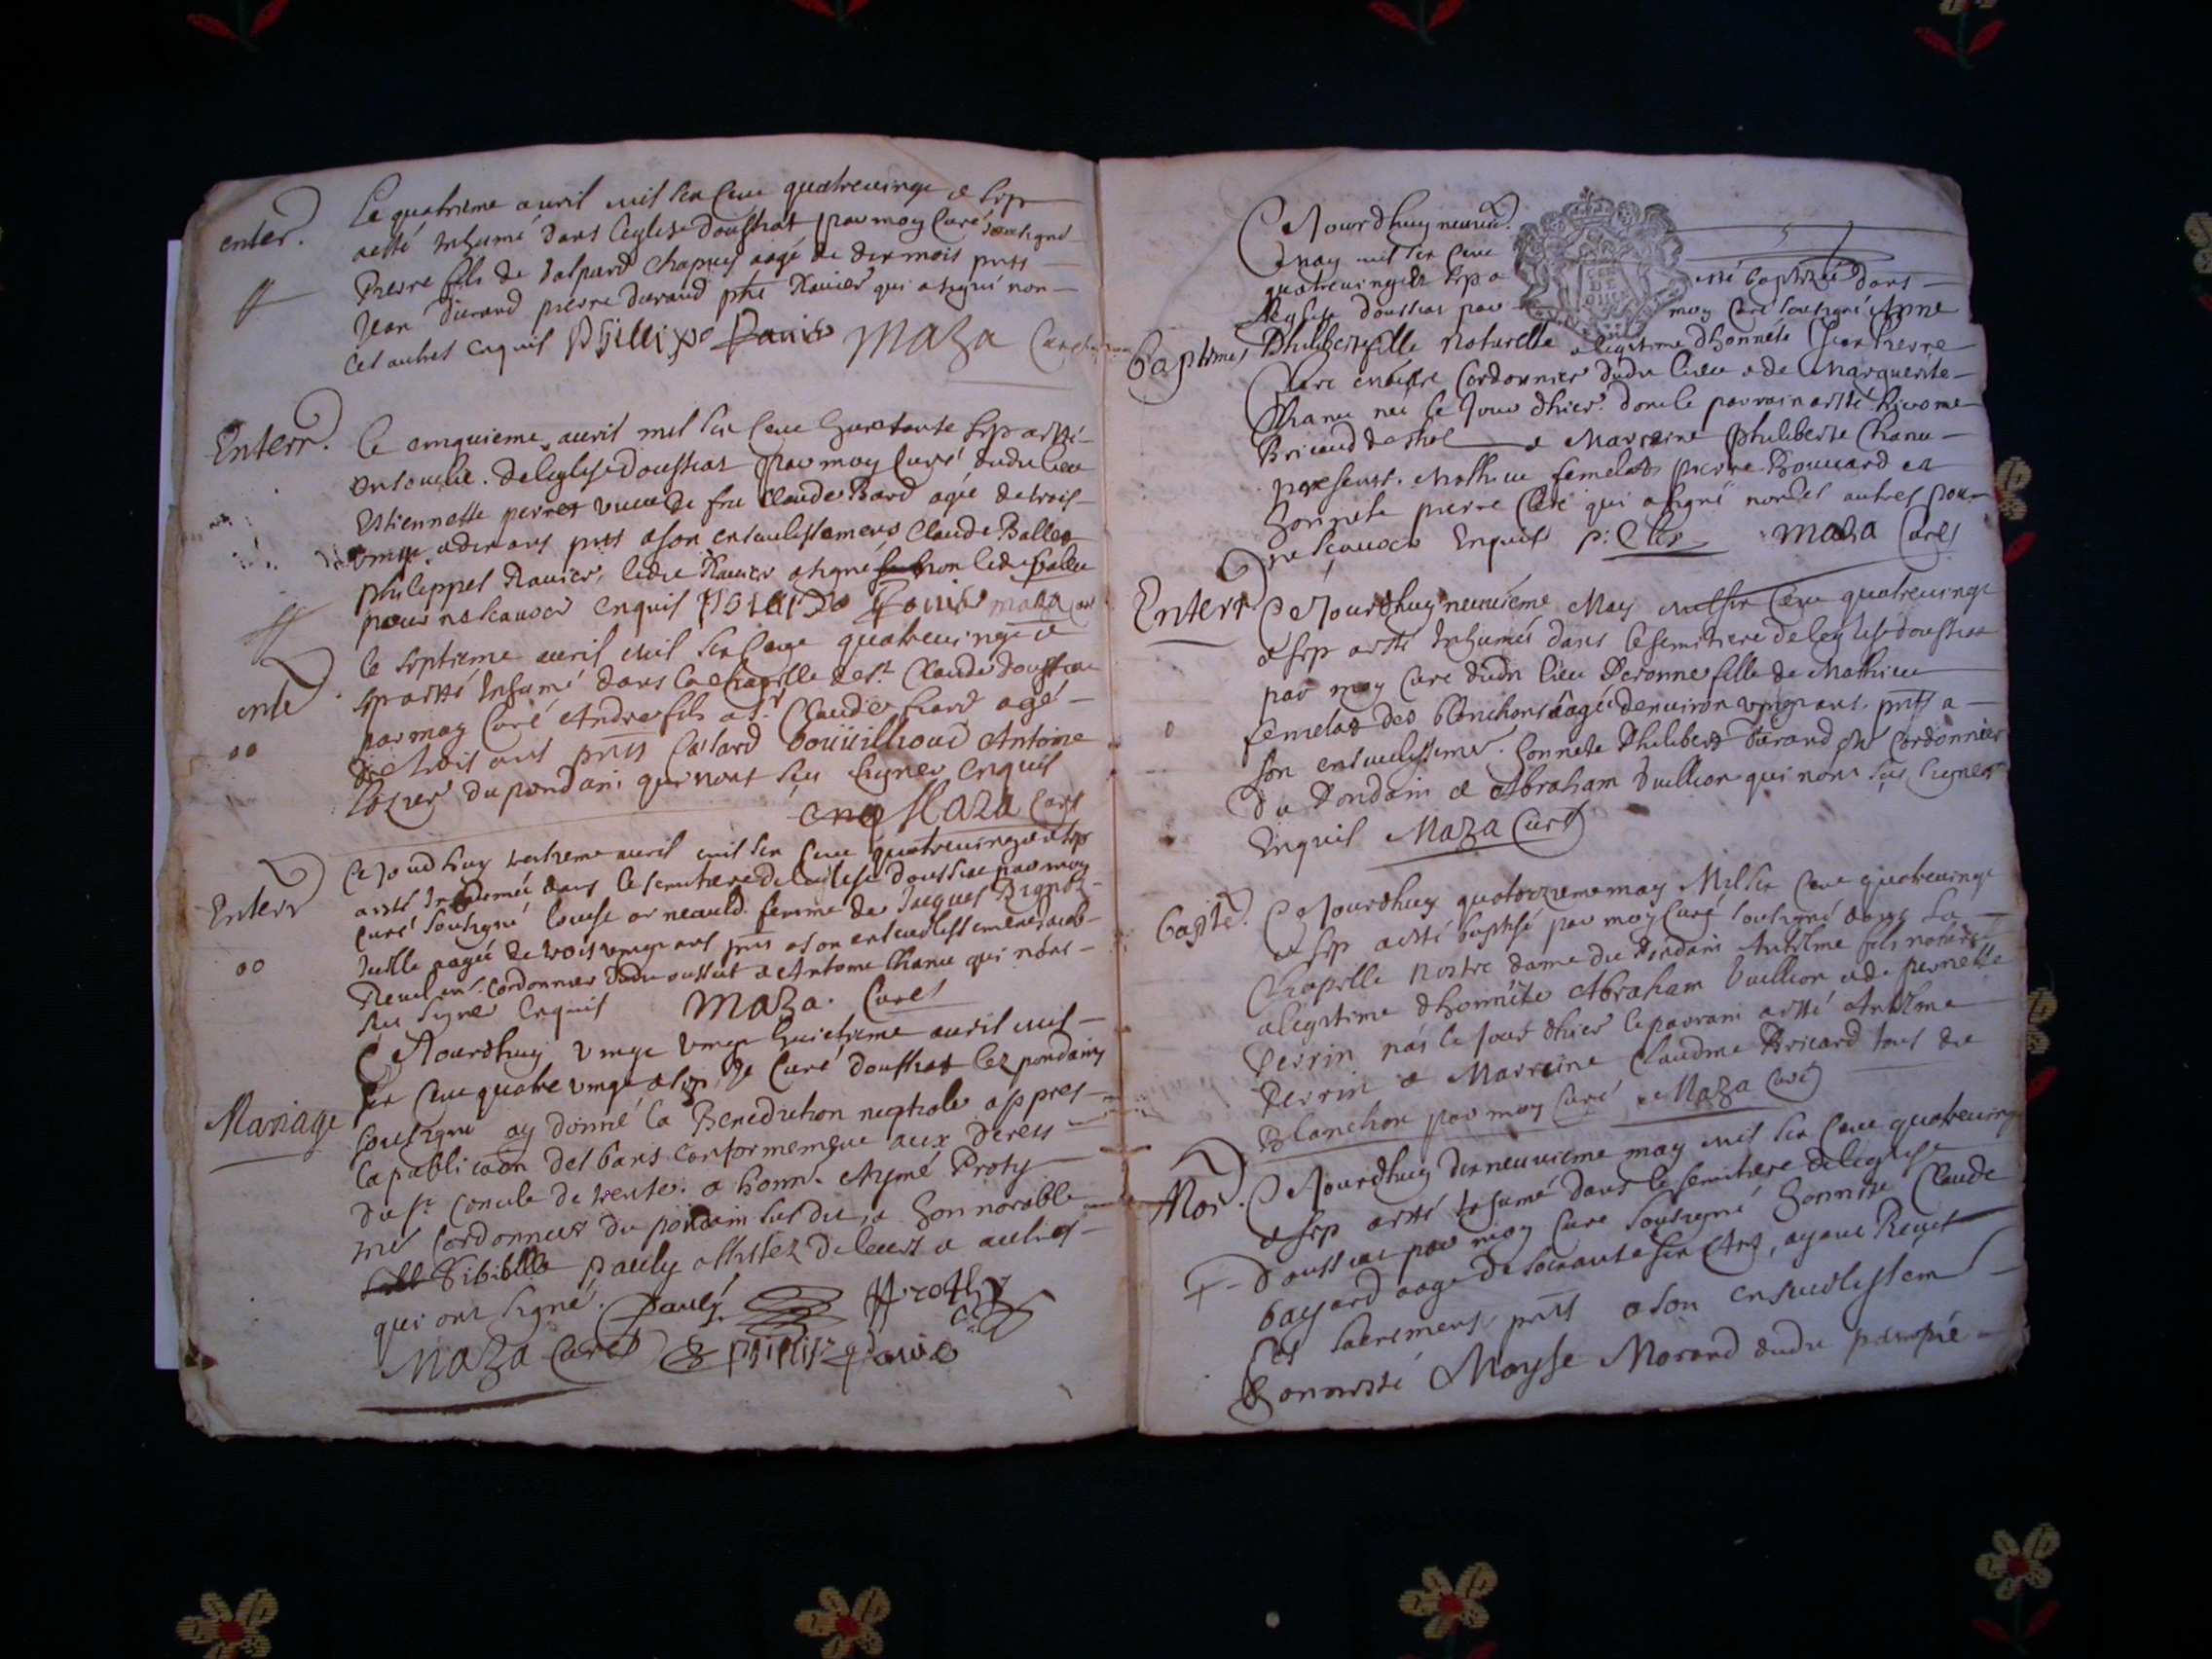 enter.
Le quatrieme avril mil six cent quatrevingt & sept
a esté Inhumé dans leglise doussiat par moy Curé soussigné
Pierre fils de Gaspard Chapuy aagé de dix mois pnts
Jean Durand pierre Durand phe Ravier qui a signé non
les autres enquis Phillipe Ravier Maza Curé
Enterr.
Ce cinquieme avril mil six cent
ensevelie . de leglise doussiat par moy Curé dudit lieu
Estiennette perret veuve de feu Claude Bard agée de trois
vingt & dix ans pnts a son ensevelissement Claude Ballet
philippes Ravier, ledit Ravier a signé non ledit Ballet
pour ne scavoir enquis Ravier maza Curé
ente
le septieme avril mil six cent quatrevingt &
sept a esté Inhumé dans la chapelle de st Claude doussiat
par moy Curé Andre fils a sr Claude agé
de trois ans pnts Antoine
du pondain qui nont sçu signer enquis
Maza Curé
Enterr
Ce jourdhuy treizieme avril mil six cent quatrevingt & sept
a esté Inhumée dans le semitiere de leglise doussiat par moy
Curé soussigné louise femme de Jacques
aagée de trois vingt ans pnts a son ensevelissement Jacob
Cordonnier dudit oussiat & Antoine Chanu qui nont
sçu signer Enquis Maza. Curé
Mariage
Ce Jourdhuy vingt vingt huictieme avril mil
six cent quatre vingt & sept, Je Curé doussiat lez pondains
soussigné ay donné la Benediction nuptiale appres
la publicaon des bans conformement aux decrets
du st Concile de trente. a honn. Aymé Proty
me Cordonnier du pondain susdit, & honnorable
Sibibille Pauly assistez de leurs & aultres
qui ont signé. Pauly. AProthy
Maza Curé Phillipe Ravie
Baptemes
Ce Jourdhuy neuvie.
may mil six cent
quatrevingt & sept a esté baptizée dans
leglise doussiat par moy Curé soussigné Anne
Philiberte fille naturelle & legitime dhonnete Jean Pierre
Clere maitre Cordonnier dudit lieu & de Marguerite
Chanu née le Jour dhier. dont le parrain a esté
Bricaud & Marreine Philiberte Chanu
presents. Mathieu femelat pierre Bouvard et
honnete pierre Cleré qui a signé non les autres pour
ne sçavoir Enquis P: Cler Maza Curé
Enterr
Ce Jourdhuy neuvieme May mil six Cent quatrevingt
& sept a esté Inhumée dans le semitiere de leglise doussiat
par moy Curé dudit lieu Peronne fille de Mathieu
femelat des blanchons âagée denviron vingt ans. pnts a
son ensevelisseme. honnete Philibert Durand me Cordonnier
du Pondain & Abraham Vuillion qui nont sçu signer
Enquis Maza Curé
Bapte.
Ce Jourdhuy quatorzieme may Mil six Cent quatrevingt
& sept a esté baptisé par moy Curé soussigné dans la
Chapelle Nostre dame du Pondain Anthelme fils naturel
& legitime dhonnete Abraham Vuillion & de pernette
Perrin nais le Jour dhier le parrain a esté Anthelme
Perrin & Marreine Claudine Bricard tous du
Blanchon par moy Curé Maza Curé
Mor.
Ce Jourdhuy dixneuvieme may mil six Cent quatrevingt
& sept a esté Inhumé dans le semitiere de leglise
doussiat par moy Curé soussigné honneste Claude
bayard aagé de soixante six Ans, ayant Receu
les sacrements, pnts a son ensevelissem
honnesté Moysse Morand dudit